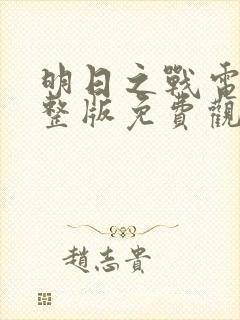 明日之戰電
整版免費觀
趙志貴